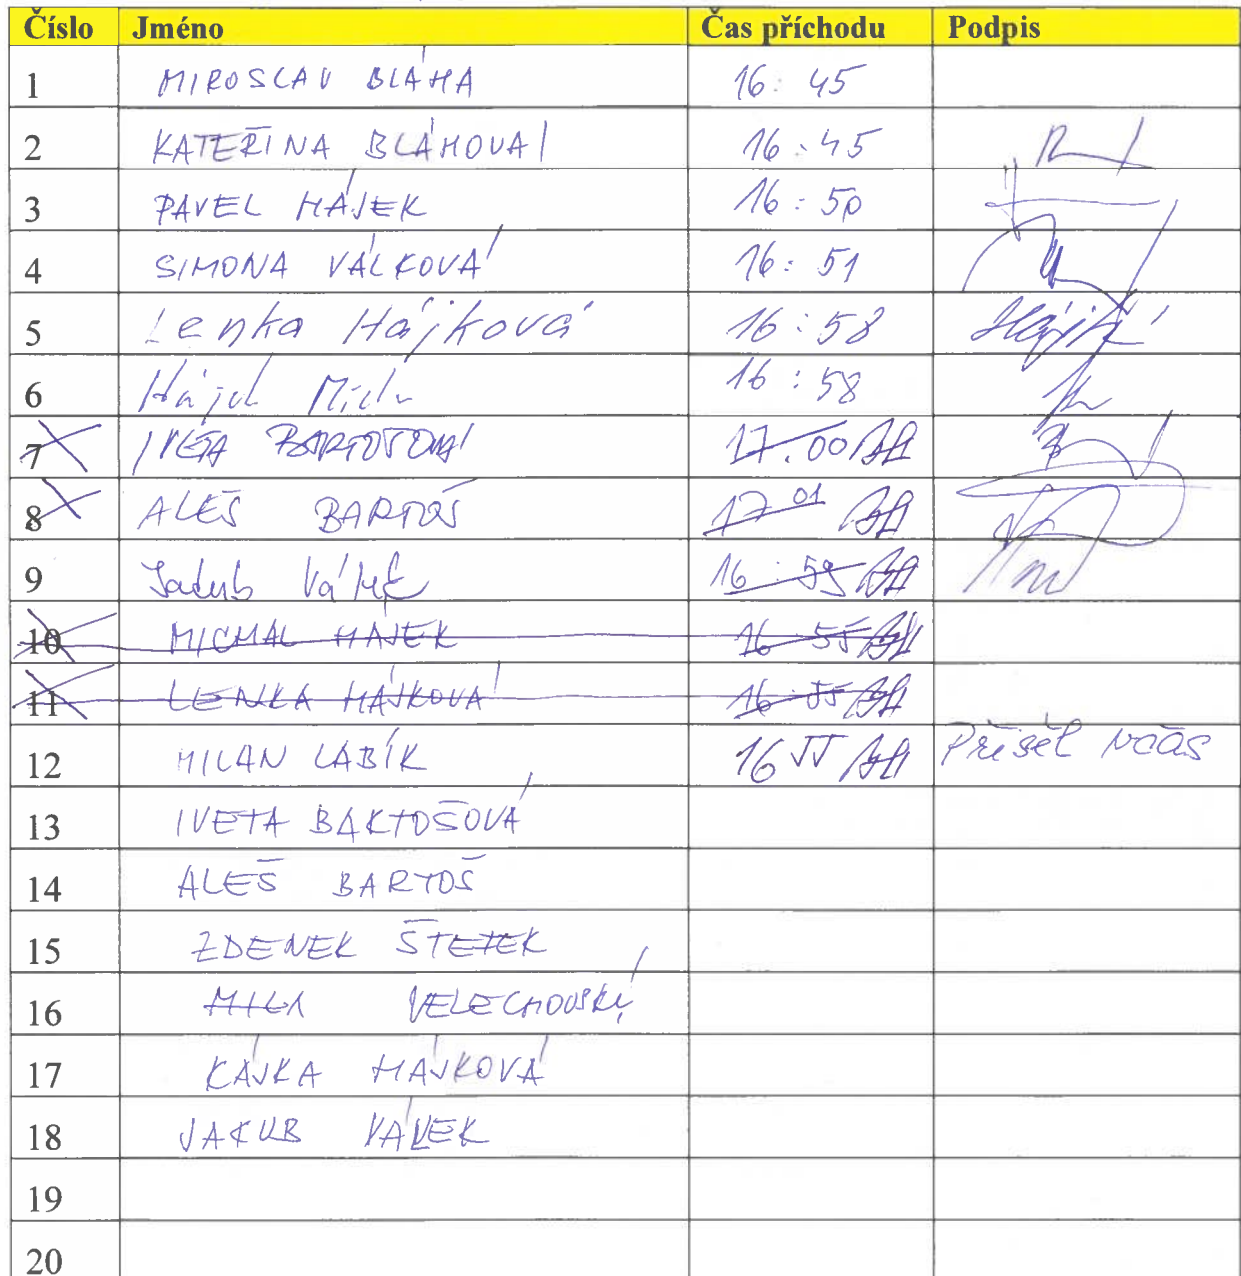 Číslo Jméno Čas příchodu Podpis
1 MIROSLAV BLÁHA 16:45
2 KATEŘINA BLÁHOVÁ 16:45
3 PAVEL HÁJEK 16:50
4 SIMONA VÁLKOVÁ 16:51
5 Lenka Hájková 16:58
6 Hájek 16:58
7 IVETA BARTOŠOVÁ 17.00
8 ALEŠ BARTOŠ 17 01
9 Jakub Válek 16 59
10 MICHAL HÁJEK 16 55
11 LENKA HÁJKOVÁ 16 55
12 MILAN LABÍK 16 55 Přišel včas
13 IVETA BARTOŠOVÁ
14 ALEŠ BARTOŠ
15 ZDENEK
16 VELECHOVSKÝ
17 KÁJKA HÁJKOVÁ
18 JAKUB VÁLEK
19
20